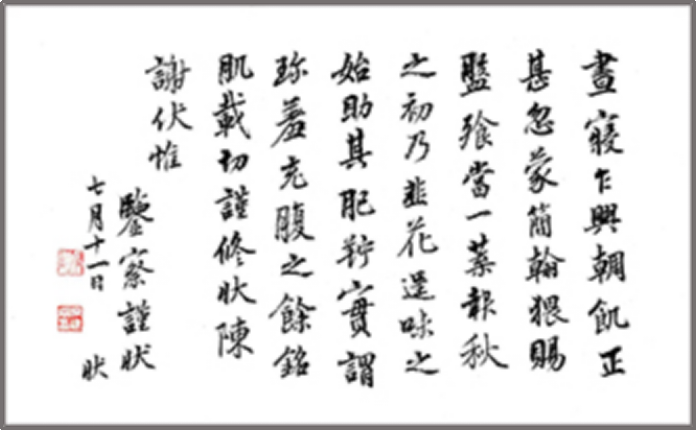 晝寢乍興輖飢正
甚忽蒙簡翰猥賜
盤飧當一葉報秋
之初乃韭花逞味之
始助其肥羜實謂
珍羞充腹之餘銘
肌載切謹修狀陳
謝伏惟
鑒察謹狀
七月十一日
狀